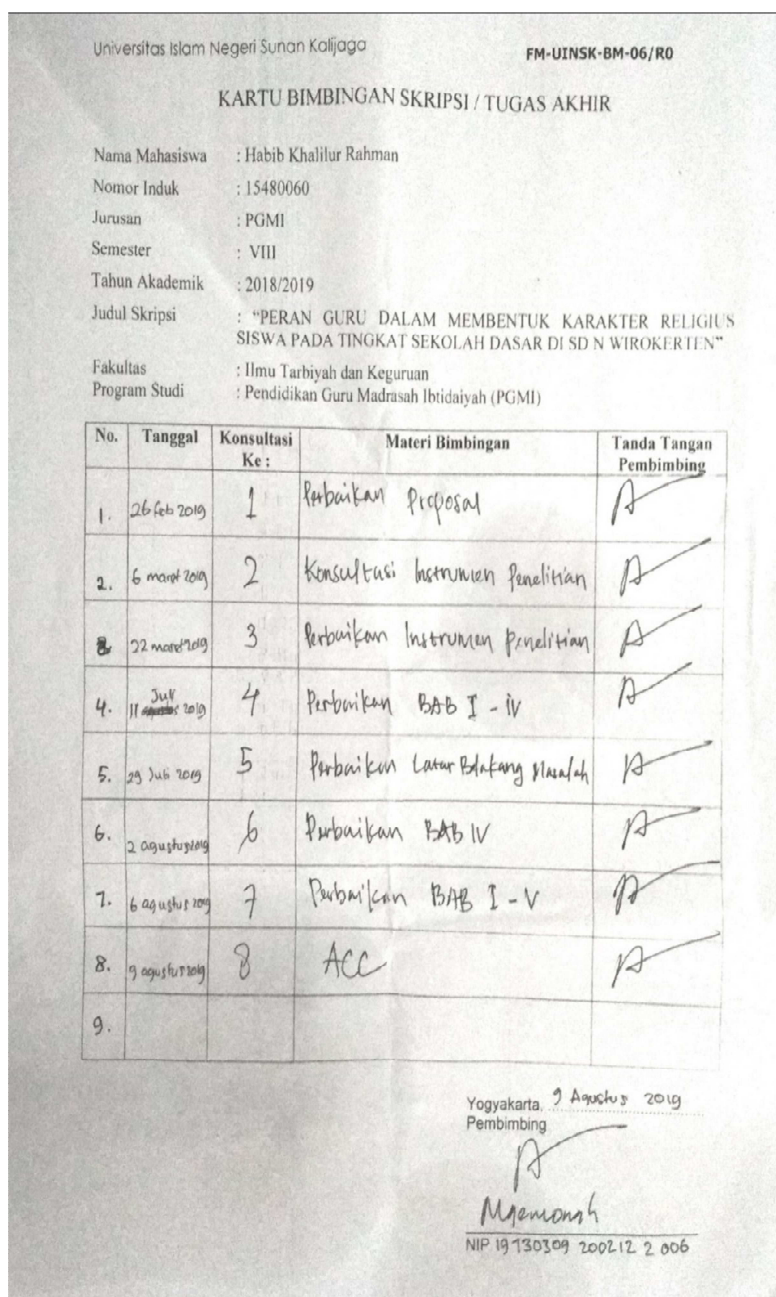 Universitas Islam Negeri Sunan Kalijaga
FM-UINSK-BM-06/R0
KARTU BIMBINGAN SKRIPSI / TUGAS AKHIR
Nama Mahasiswa : Habib Khalilur Rahman
Nomor Induk : 15480060
Jurusan : PGMI
Semester : VIII
Tahun Akademik : 2018/2019
Judul Skripsi : “PERAN GURU DALAM MEMBENTUK KARAKTER RELIGIUS
SISWA PADA TINGKAT SEKOLAH DASAR DI SD N WIROKERTEN”
Fakultas : Ilmu Tarbiyah dan Keguruan
Program Studi : Pendidikan Guru Madrasah Ibtidaiyah (PGMI)
No. Tanggal Konsultasi Ke : Materi Bimbingan Tanda Tangan Pembimbing
1. 26 feb 2019 1 Perbaikan Proposal
2. 6 maret 2019 2 Konsultasi Instrumen Penelitian
22 maret 2019 3 Perbaikan Instrumen Penelitian
4. 11 Juli 2019 4 Perbaikan BAB I - IV
5. 29 Juli 2019 5 Perbaikan Latar Belakang Masalah
6. 2 agustus 2019 6 Perbaikan BAB IV
7. 6 agustus 2019 7 Perbaikan BAB I - V
8. 9 agustus 2019 8 ACC
9.
Yogyakarta, 9 Agustus 2019
Pembimbing
NIP 19730309 200212 2 006